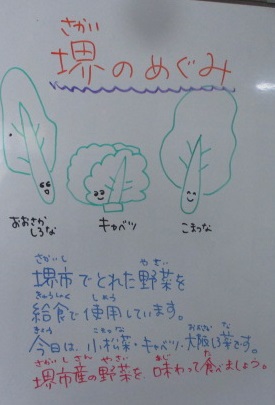 さかい
堺のめぐみ
おおさか
しろな
キャベツ
こまつな
さかいし やさい
堺市でとれた野菜を
きゅうしょく しよう
給食で使用しています。
きょう こまつな おおさか な
今日は、小松菜・キャベツ・大阪しろ菜です。
さかいしさん やさい あじ た
堺市産の野菜を、味わって食べましょう。